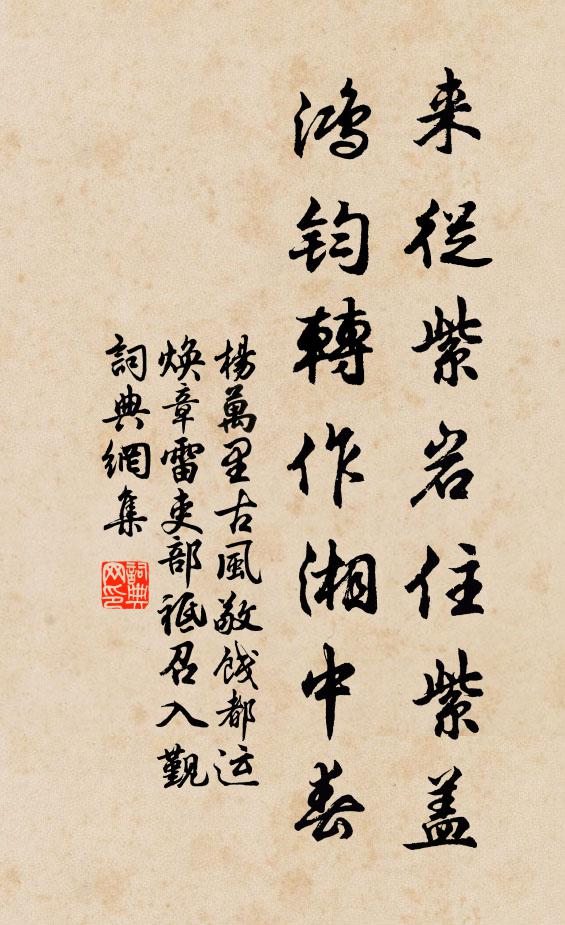 来從紫岩住紫盖
鴻鈞轉作湘中春
楊萬里古風敬餞都运
焕章雷吏部祗召入觐
詞典網集
詞典网印